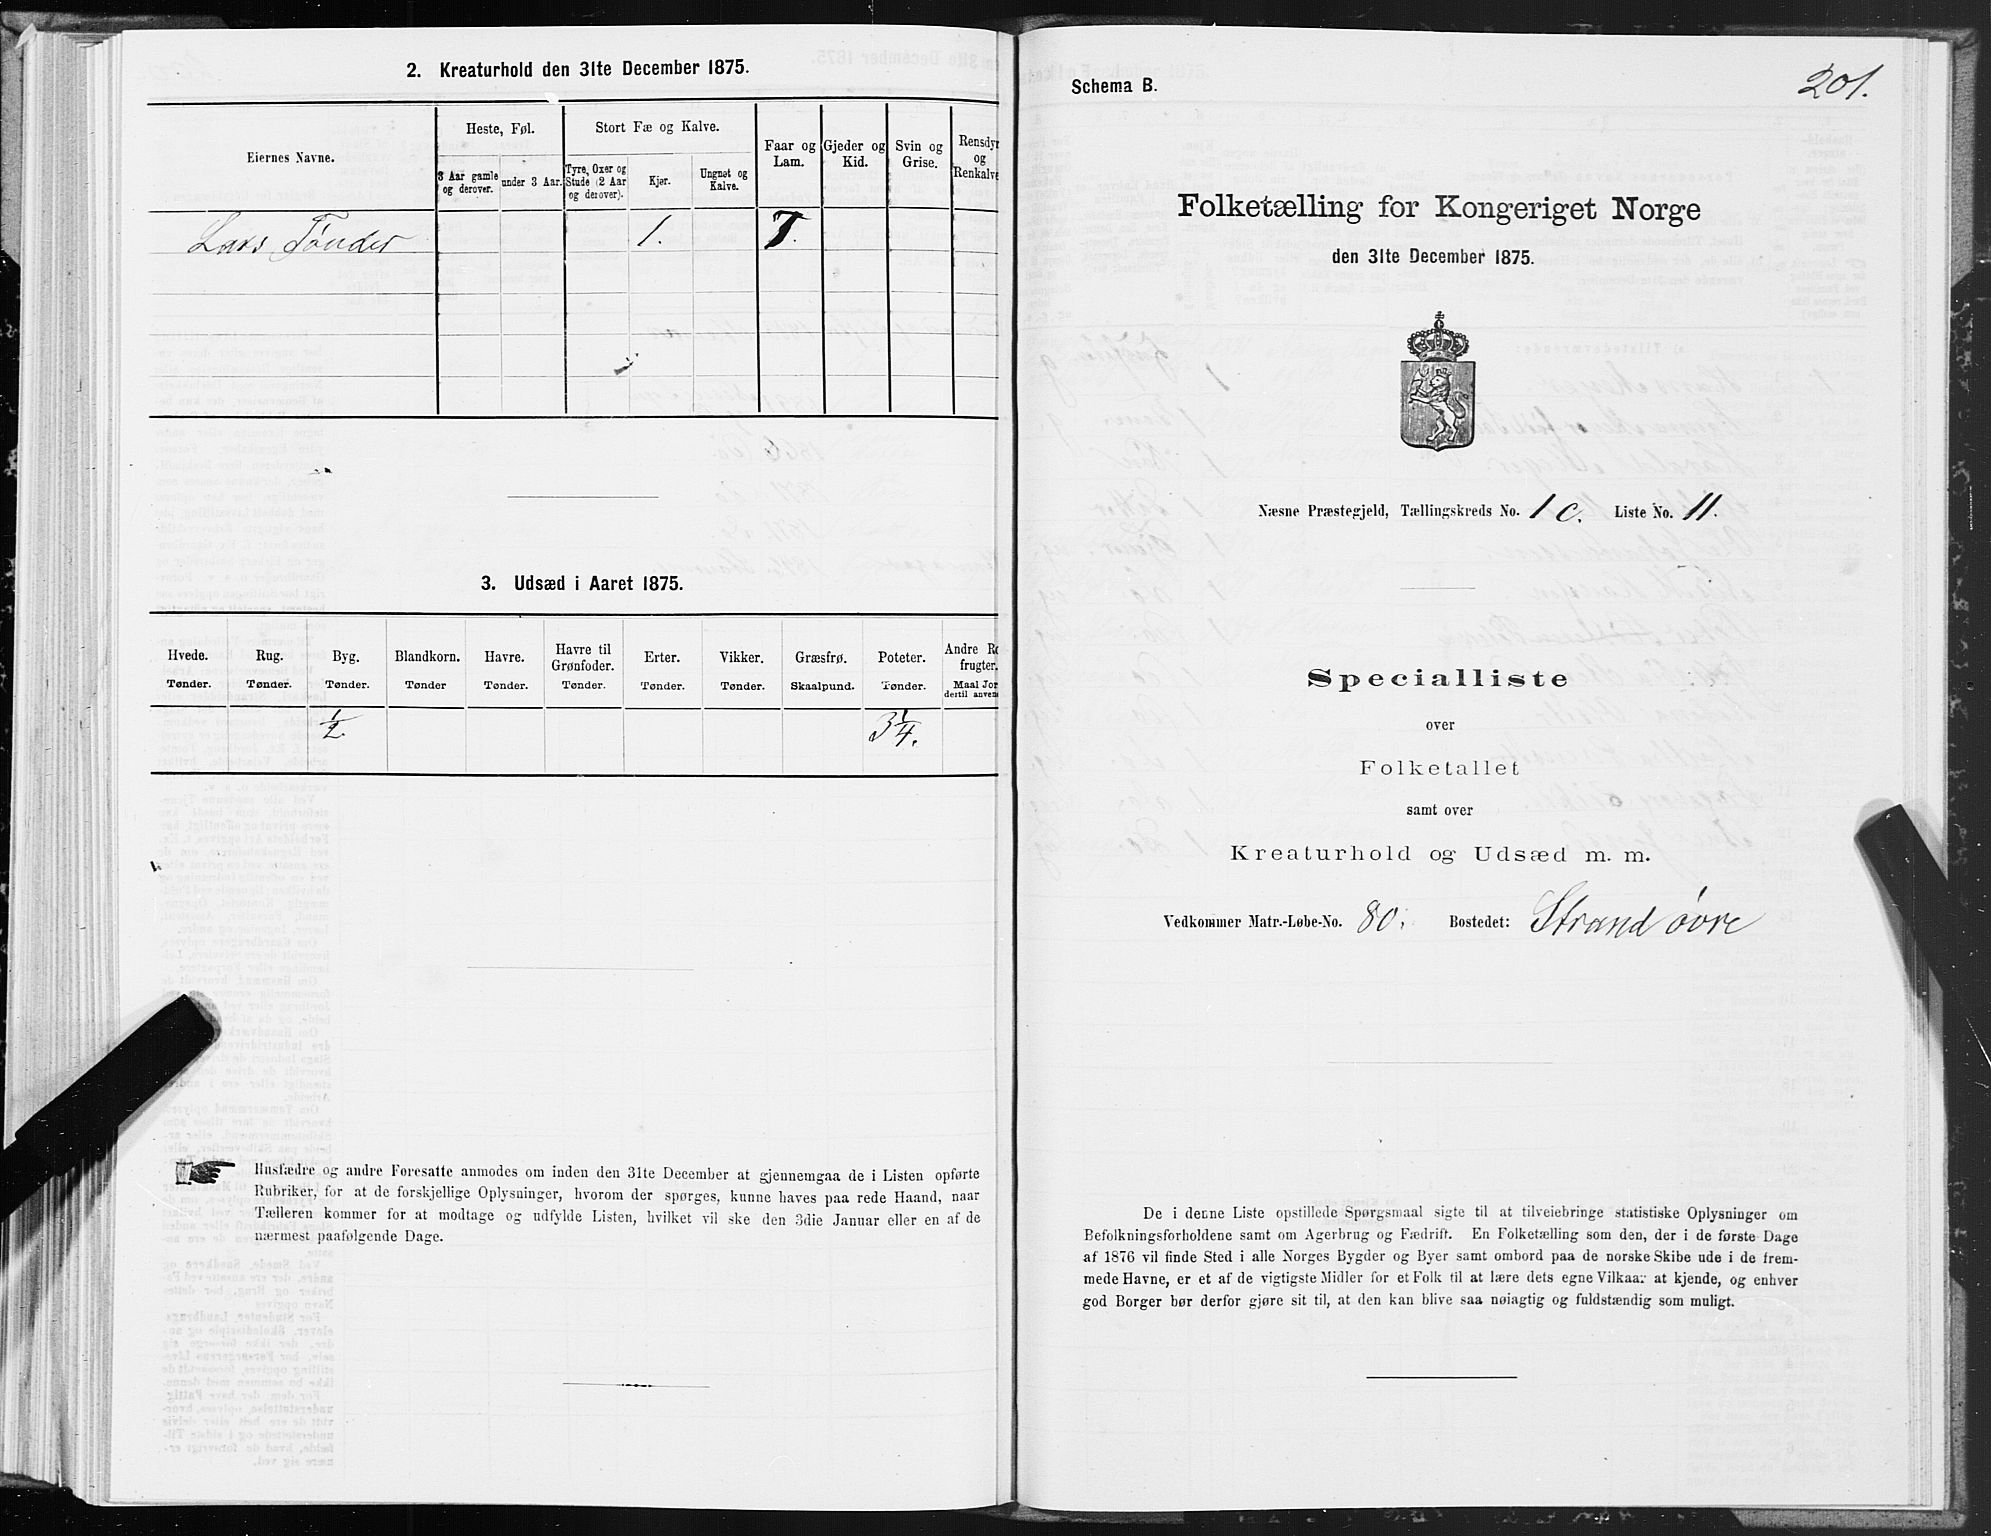 2. Kreaturhold den 31te December 1875.
Eiernes Navne.
Heste, Føl.
3 Aar gamle og derover.
under 3 Aar.
Stort Fæ og Kalve.
Tyre, Oxer og Stude (2 Aar og derover).
Kjør.
Ungnøt og Kalve.
Faar og Lam.
Gjeder og Kid.
Svin og Grise.
Rensdyr og Renkalve
Lars Tønder 1.
3. Udsæd i Aaret 1875.
Hvede. Rug. Byg. Blandkorn. Havre. Havre til Grønfoder. Erter. Vikker. Græsfrø. Poteter. Andre Ro frugter.
Tønder. Tønder. Tønder. Tønder Tønder. Tønder. Tønder. Tønder. Skaalpund. Tønder. Maal Jor dertil anven
1/2. 3 1/4.
Husfædre og andre Foresatte anmodes om inden den 31te December at gjennemgaa de i Listen opførte
Rubriker, for at de forskjellige Oplysninger, hvorom der spørges, kunne haves paa rede Haand, naar
Tælleren kommer for at modtage og udfylde Listen, hvilket vil ske den 3die Januar eller en af de
nærmest paafølgende Dage.
201.
Schema B.
Folketælling for Kongeriget Norge
den 31te December 1875.
Næsne Præstegjeld, Tællingskreds No. 1 c. Liste No. 11.
Specialliste
over
Folketallet
samt over
Kreaturhold og Udsæd m. m.
Vedkommer Matr.-Løbe-No. 80. Bostedet: Strand øvre
De i denne Liste opstillede Spørgsmaal sigte til at tilveiebringe statistiske Oplysninger om
Befolkningsforholdene samt om Agerbrug og Fædrift. En Folketælling som den, der i de første Dage
af 1876 vil finde Sted i alle Norges Bygder og Byer samt ombord paa de norske Skibe ude i de frem-
mede Havne, er et af de vigtigste Midler for et Folk til at lære dets egne Vilkaar at kjende, og enhver
god Borger bør derfor gjøre sit til, at den kan blive saa nøiagtig og fuldstændig som muligt.